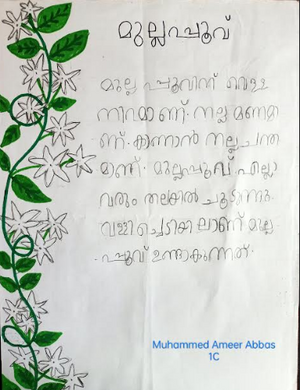 മുല്ലപ്പൂവ്
മുല്ല പ്പൂവിന് വെള്ള
നിറമാണ്. നല്ല മണമാ
ണ്. കാണാൻ നല്ലചന്ത
മാണ്. മുല്ലപ്പൂവ് എല്ലാ
വരും തലയിൽ ചൂടുന്നു.
വള്ളിച്ചെടിയ ലാണ് മുല്ല
പ്പൂവ് ഉണ്ടാകുന്നത്.
Muhammed Ameer Abbas
1C